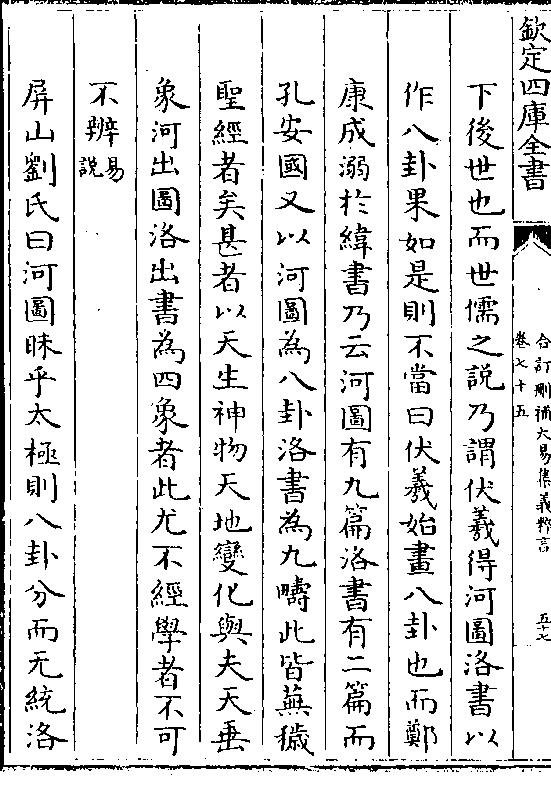 欽定四庫全書
合訂刪補大易集義粹言
卷七十五
五十七
下後世也而世儒之説乃謂伏羲得河圖洛書以
作八卦果如是則不當曰伏羲始畫八卦也而鄭
康成溺於緯書乃云河圖有九篇洛書有二篇而
孔安國又以河圖為八卦洛書為九疇此皆蕪穢
聖經者矣甚者以天生神物天地變化與夫天垂
象河出圖洛出書為四象者此尤不經學者不可
不辨易説
屏山劉氏曰河圖昧乎太極則八卦分而无統洛